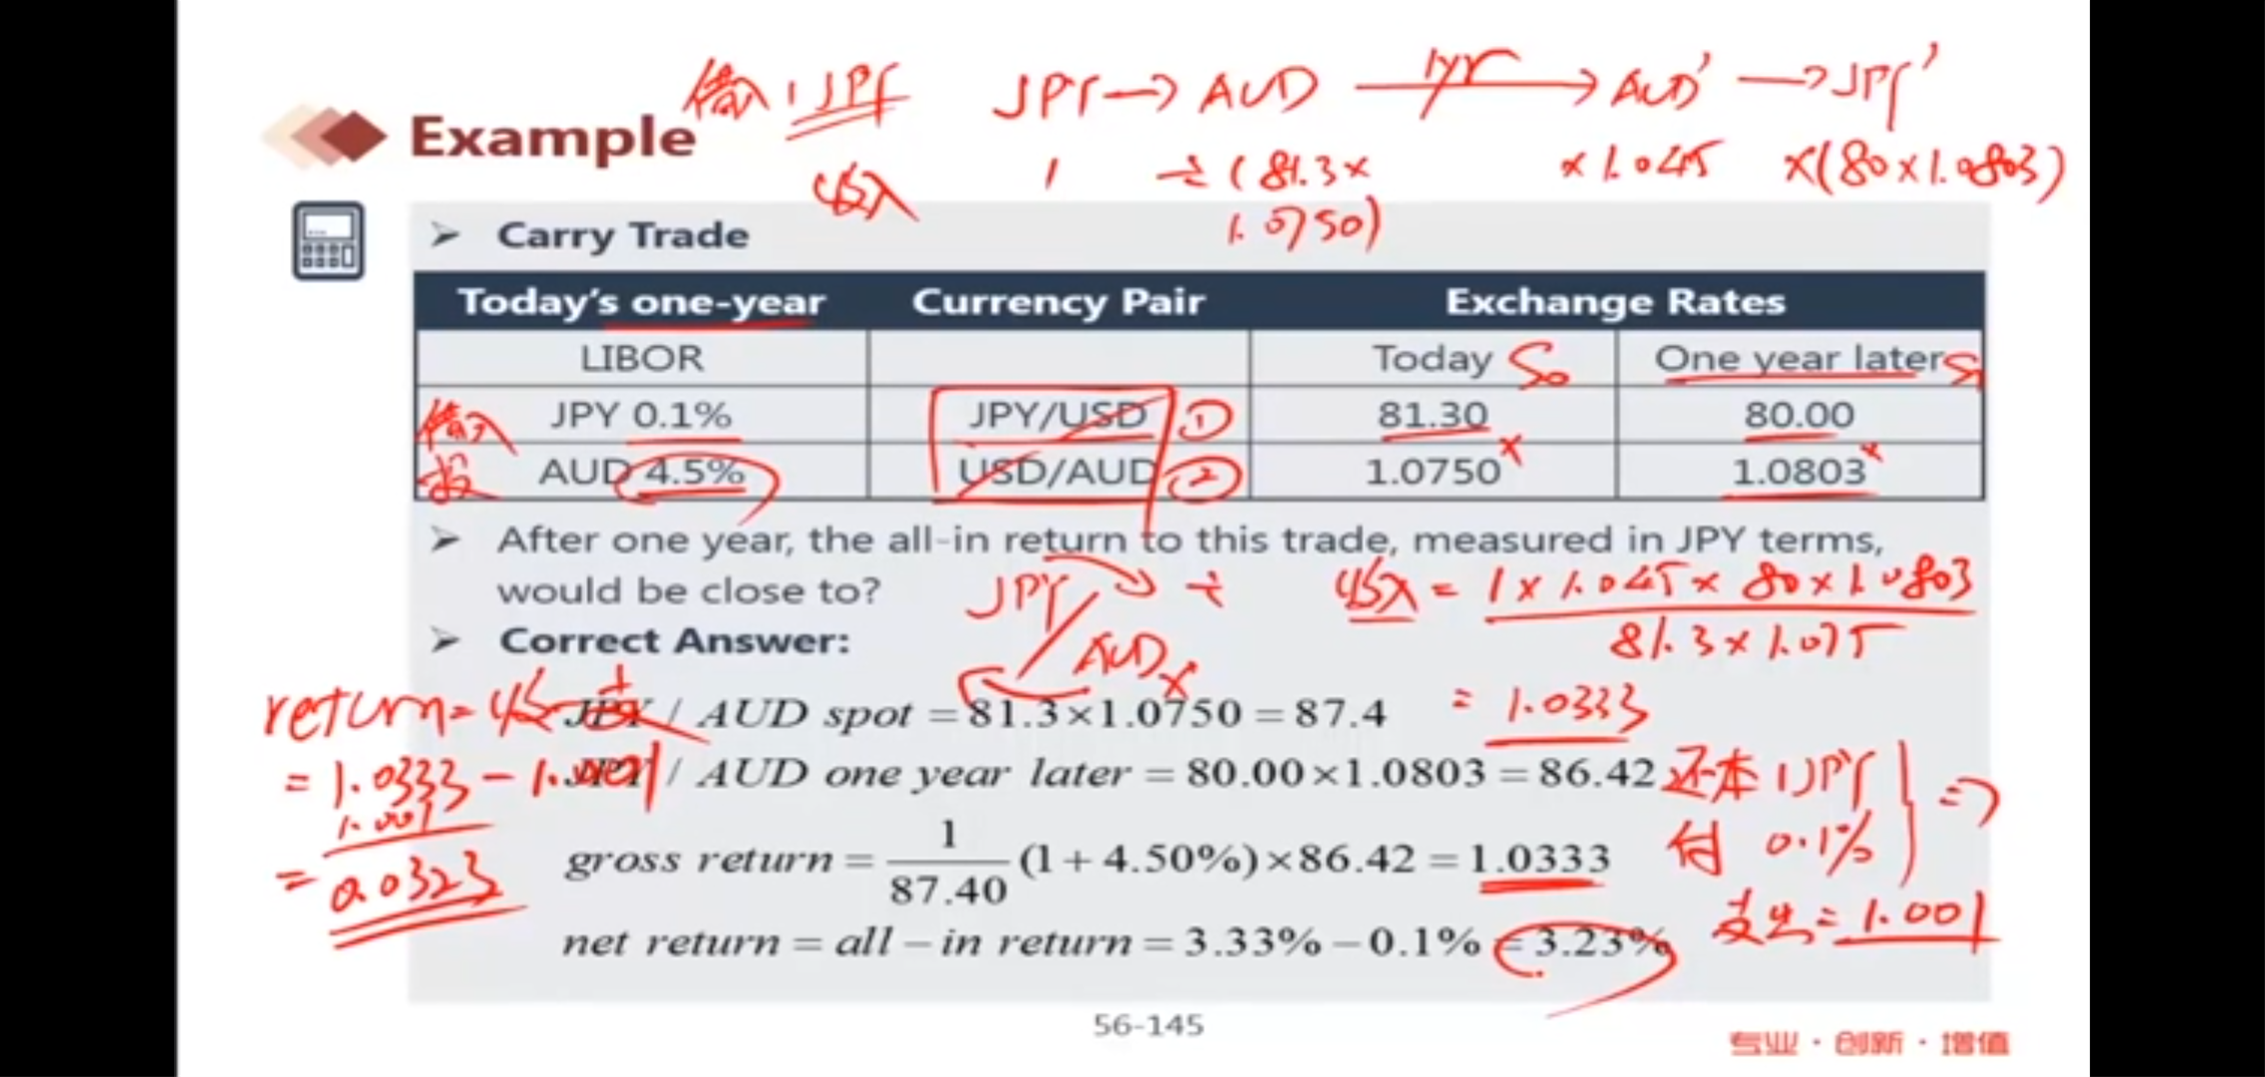 借入1JPY JPY→AUD 1yr→ AUD'→JPY'
收入 1 ÷(81.3× ×1.045 ×(80×1.0803)
1.0750)
Example
➢ Carry Trade
Today's one-year Currency Pair Exchange Rates
LIBOR Today S₀ One year later S₁
借入 JPY 0.1% JPY/USD ① 81.30 80.00
投 AUD 4.5% USD/AUD ② 1.0750 × 1.0803 ×
➢ After one year, the all-in return to this trade, measured in JPY terms,
would be close to?
JPY/AUD ÷ ×
收入 = 1×1.045×80×1.0803
81.3×1.075
= 1.0333
➢ Correct Answer:
JPY / AUD spot = 81.3×1.0750 = 87.4
JPY / AUD one year later = 80.00×1.0803 = 86.42
gross return = 1/87.40 (1+4.50%)×86.42 = 1.0333
net return = all − in return = 3.33% − 0.1% = 3.23%
return = 收-支
= 1.0333 - 1.001
1.001
= 0.0323
还本 1JPY
付 0.1% ⇒
支出 = 1.001
56-145
专业·创新·增值